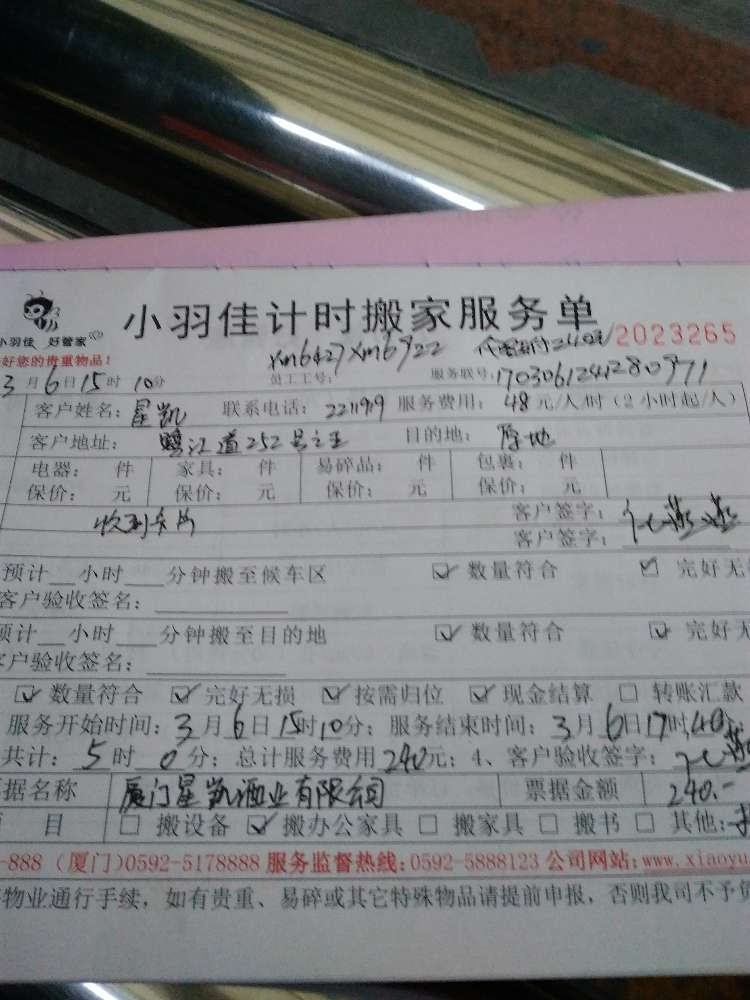 小羽佳 好管家
小羽佳计时搬家服务单
2023265
好您的贵重物品！
xm6427 xm6922
员工工号：
服务联号：1703061241280971
3月6日15时10分
客户姓名：星凯 联系电话：2211919 服务费用：48元/人/时（2小时起/人）
客户地址：鹭江道252号之五 目的地：原地
电器： 件 家具： 件 易碎品： 件 包裹： 件
保价： 元 保价： 元 保价： 元 保价： 元
客户签字：
客户签字：
预计__小时___分钟搬至候车区 数量符合 完好无
客户验收签名：
预计__小时___分钟搬至目的地 数量符合 完好无
客户验收签名：
数量符合 完好无损 按需归位 现金结算 转账汇款
服务开始时间：3月6日15时10分；服务结束时间：3月6日17时40
共计：5时0分；总计服务费用240元；4、客户验收签字：
据名称 厦门星凯酒业有限公司 票据金额 240.-
目 搬设备 搬办公家具 搬家具 搬书 其他：
-888（厦门）0592-5178888 服务监督热线：0592-5888123 公司网站：www.xiaoyu
物业通行手续，如有贵重、易碎或其它特殊物品请提前申报，否则我司不予